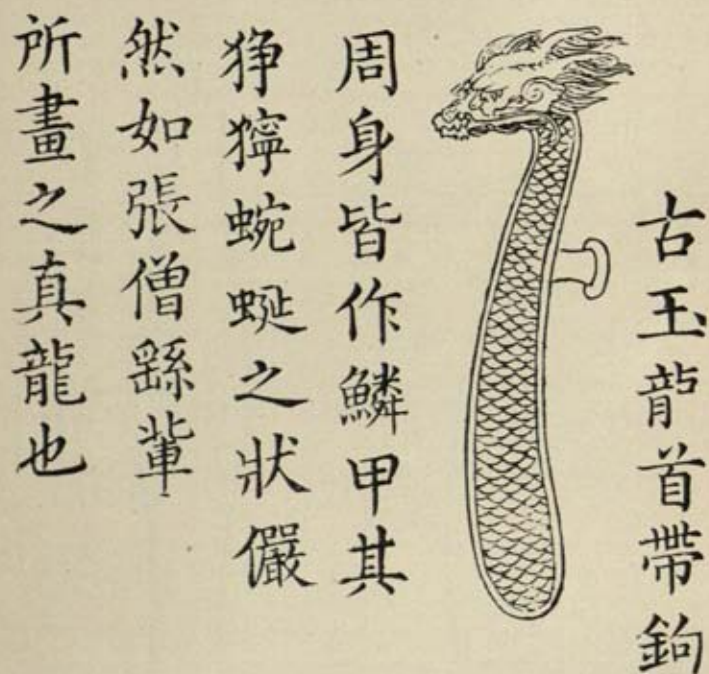 古玉龍首帶鉤
周身皆作鱗甲其
猙獰蜿蜒之狀儼
然如張僧繇輩
所畫之真龍也